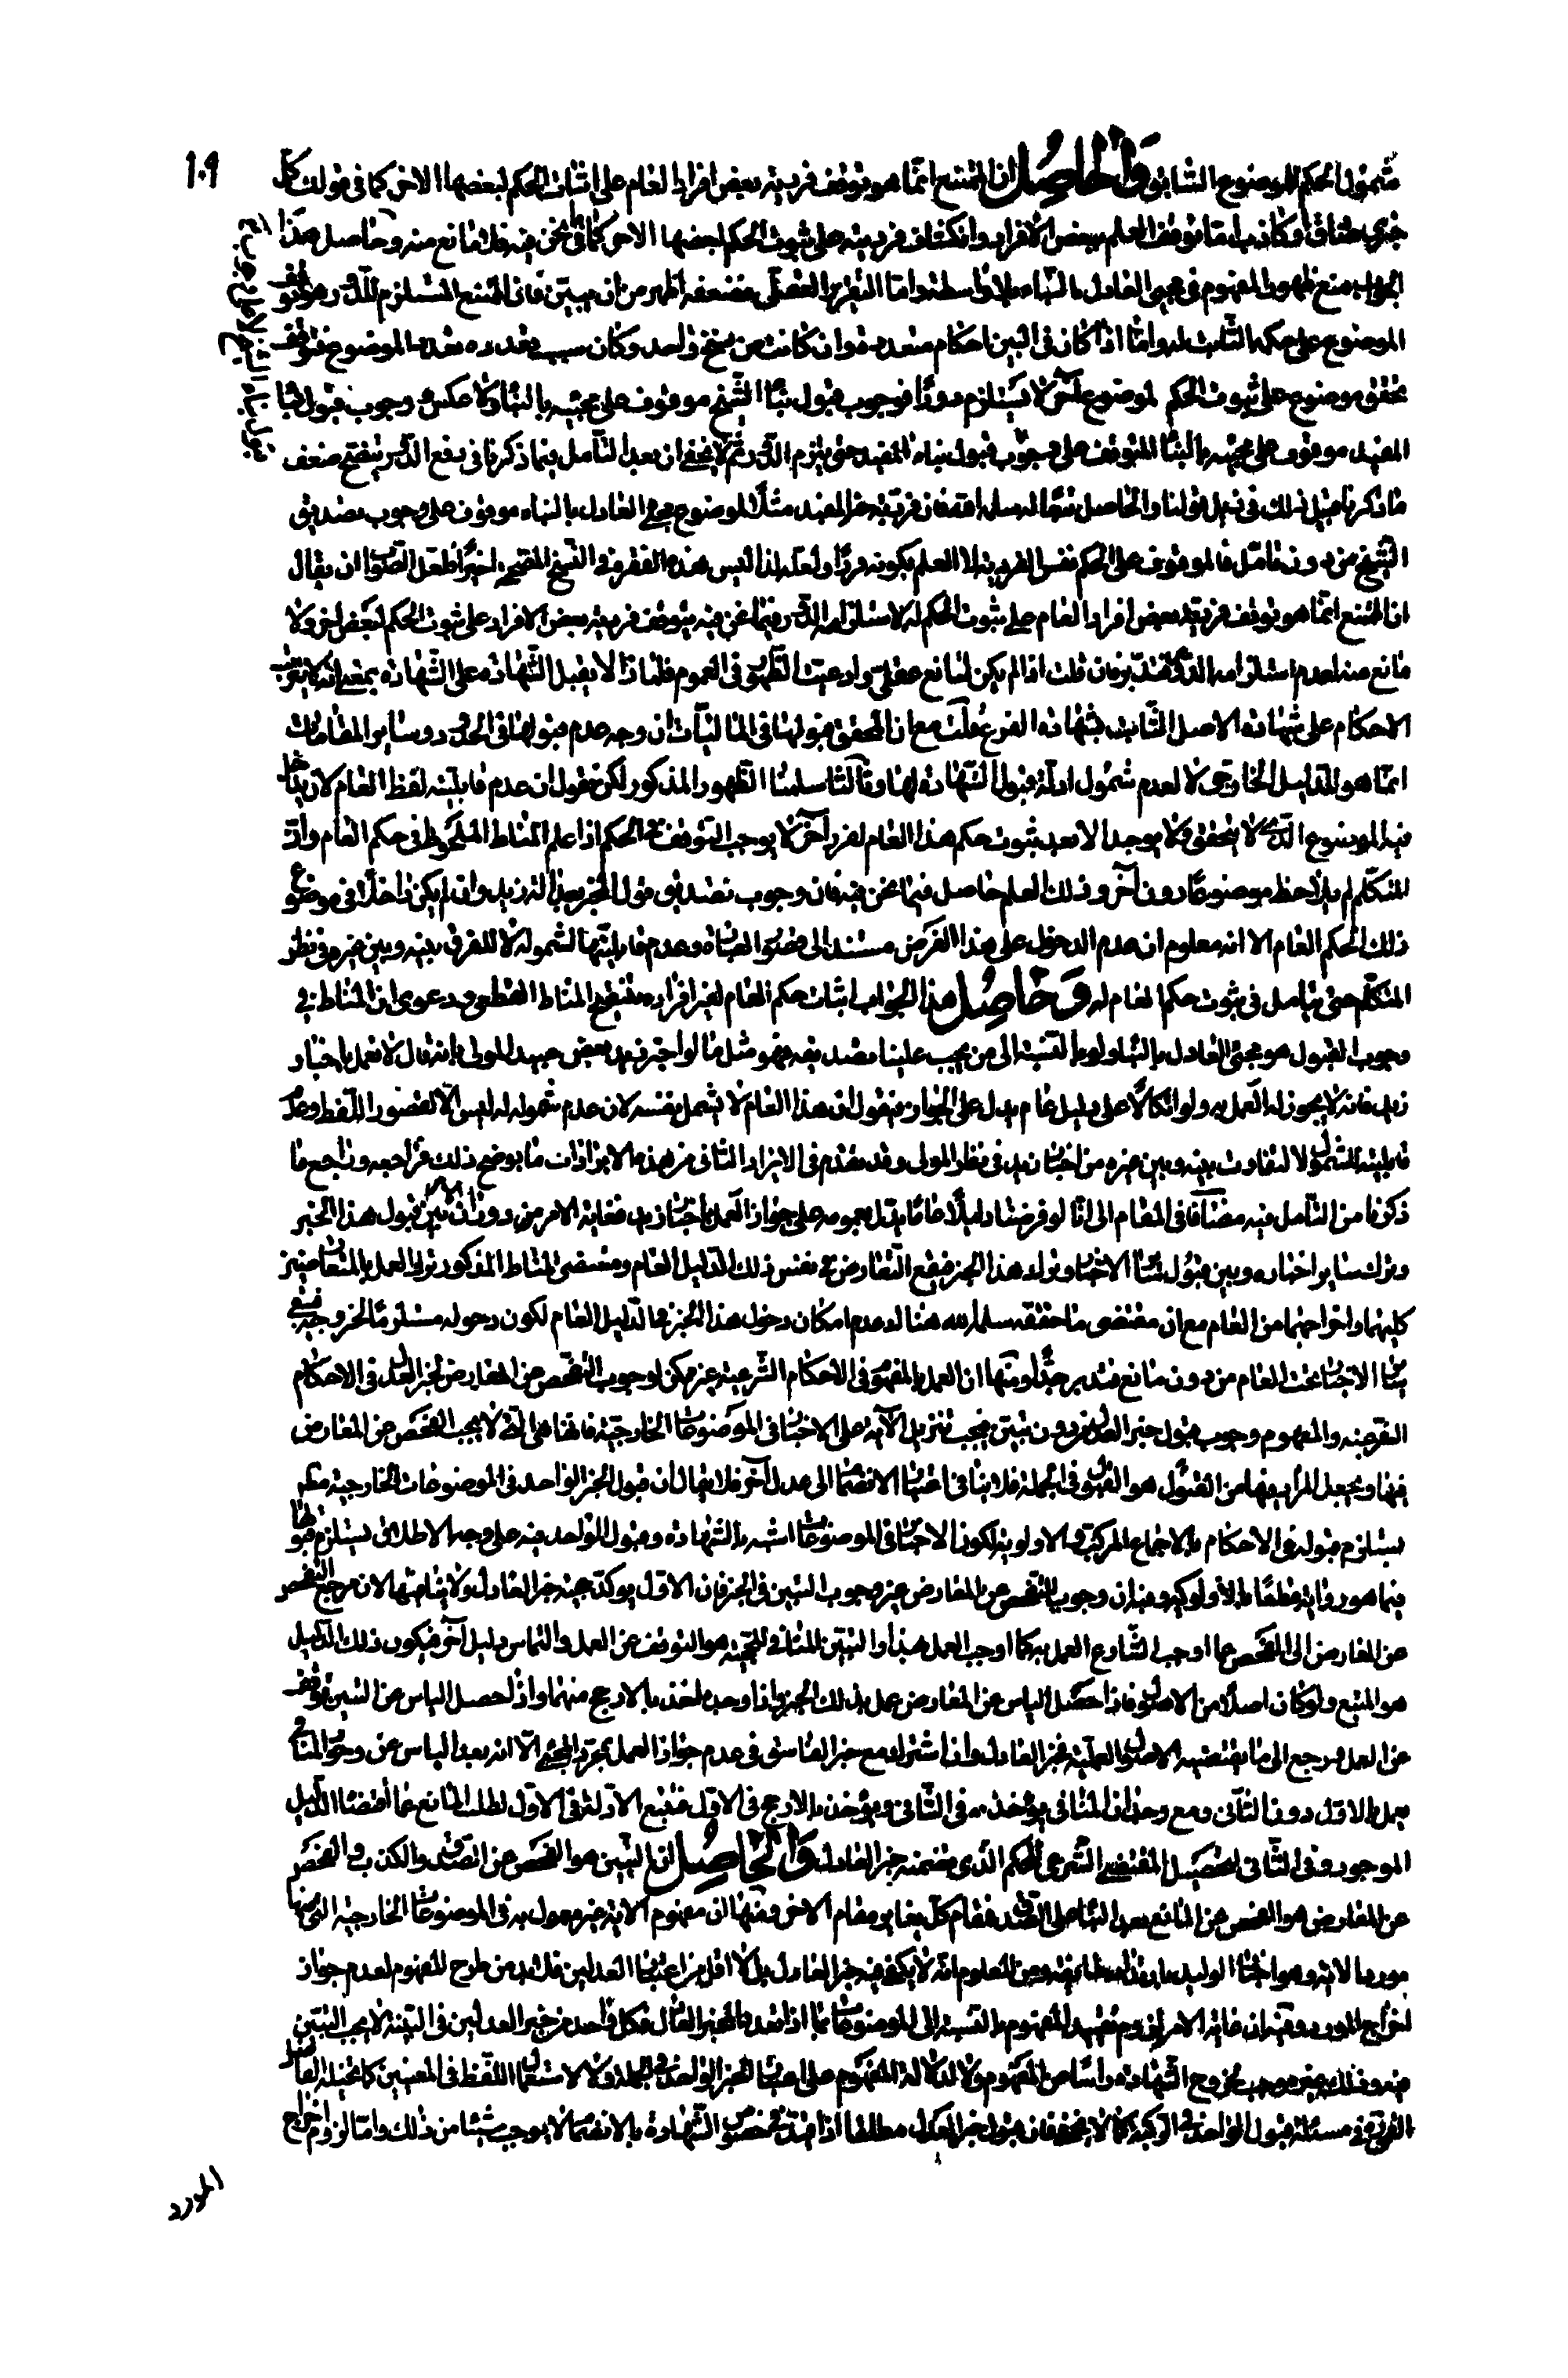 ١٠٩
شمول الحكم للموضوع السابق والحاصل ان الممتنع انما هو توقف فردية بعض افراد العام على اثبات الحكم لبعضها الاخر كما في قولك كل
خبري صادق او كاذب اما توقف العلم ببعض الافراد وانكشاف فرديته على ثبوت الحكم لبعضها الاخر كما فيما نحن فيه فلا مانع منه وحاصل هذا
الجواب منع ظهور المفهوم في مجيئ العادل بالنباء بلا واسطة واما التقرير العقلي فضعفه اظهر من ان يبين فان الممتنع المستلزم للدور هو توقف
الموضوع على حكمه الثابت له واما اذا كان في البين احكام متعددة وان كانت من سنخ واحد وكان سبب تعدده تعدد الموضوع فتوقف
تحقق موضوع على ثبوت الحكم لموضوع اخر لا يستلزم دورا فوجوب قبول نبأ الشيخ موقوف على مجيئه بالنباء ولا عكس وجوب قبول نبأ
المفيد موقوف على مجيئه بالنبأ المتوقف على وجوب قبول نباء المفيد حتى يلزم الدور ثم لا يخفى ان بعد التأمل فيما ذكرنا في دفع الدور يتضح ضعف
ما ذكرنا قبل ذلك في ذيل قولنا والحاصل تبعا له سلمه الله فان فردية خبر المفيد مثلا لموضوع مجيئ العادل بالنباء موقوف على وجوب تصديق
الشيخ من دون تامل فالموقوف على الحكم نفس الفردية لا العلم بكونه فردا ولعله لذا ليس هذه الفقرة في النسخ المصححة اخيرا فلعل الصواب ان يقال
ان الممتنع انما هو توقف فردية بعض افراد العام على ثبوت الحكم له لاستلزامه الدور وفيما نحن فيه يتوقف فردية بعض الافراد على ثبوت الحكم لبعض اخر ولا
مانع منه لعدم استلزامه الدور فتدبر فان قلت اذا لم يكن لمانع عقلي وادعيت الظهور في العموم فلما ذا لا يقبل الشهادة على الشهادة بمعنى انه لا يترتب
الاحكام على شهادة الاصل الثابت بشهادة الفرع قلت مع ان المحقق قبولها في الماليات ان وجه عدم قبولها في الحدود وساير المقامات
انما هو الدليل الخارجي لا لعدم شمول ادلة قبول الشهادة لها وثالثا سلمنا الظهور المذكور لكن نقول ان عدم قابلية لفظ العام لان يدخل
فيه الموضوع الذي لا يتحقق ولا يوجد الا بعد ثبوت حكم هذا العام لفرد اخر لا يوجب التوقف في الحكم اذا علم المناط الملحوظ في حكم العام وان
المتكلم لم يلاحظ موضوعا دون آخر وذلك العلم حاصل فيما نحن فيه فان وجوب تصديق قول المخبر بعدالة زيد وان لم يكن داخلا في موضوع
ذلك الحكم العام الا انه معلوم ان عدم الدخول على هذا الفرض مستند الى قصور العبارة وعدم قابليتها لشموله لا للفرق بينه وبين غيره في نظر
المتكلم حتى يتامل في ثبوت حكم العام له وحاصل هذا الجواب اثبات حكم العام لغير افراده بتنقيح المناط القطعي ودعوى ان المناط في
وجوب القبول هو مجيئ العادل بالنباء ولو بالنسبة الى من يجب علينا تصديقه فهو مثل ما لو اخبر زيد بعض عبيد المولى بانه قال لا تعمل باخبار
زيد فانه لا يجوز له العمل به ولو اتكالا على دليل عام يدل على الجواز فيقول ان هذا العام لا يشمل نفسه لان عدم شموله له ليس الا لقصور اللفظ وعدم
قابليته للشمول لا لتفاوت بينه وبين غيره من اخبار زيد في نظر المولى وقد تقدم في الايراد الثاني من هذه الايرادات ما يوضح ذلك فراجعه وراجع ما
ذكرنا من التامل فيه مضافا في المقام الى انا لو فرضنا دليلا عاما يدل بعمومه على جواز العمل باخبار زيد فغاية الامر من دوران الامر بين قبول هذا الخبر
وترك ساير اخباره وبين قبول سائر الاخبار وترك هذا الخبر فيقع التعارض في نفس ذلك الدليل العام ومقتضى المناط المذكور ترك العمل بالمتعارضين
كليهما واخراجهما من العام مع ان مقتضى ما حققه سلمه الله هنا له عدم امكان دخول هذا الخبر في الدليل العام لكون دخوله مستلزما لخروجه فيبقى
سائر الاخبار تحت العام من دون مانع فتدبر جدا ومنها ان العمل بالمفهوم في الاحكام الشرعية غير ممكن لوجوب التفحص عن المعارض لخبر العدل في الاحكام
الشرعية والمفهوم وجوب قبول خبر العدل من دون تبين فيجب تنزيل الآية على الاخبار في الموضوعات الخارجية فانها هي التي لا يجب الفحص عن المعارض
فيها ويجعل المراد فيها من القبول هو القبول في الجملة فلا ينافي اعتبار الانضمام الى عدل اخر فلا يقال ان قبول الخبر الواحد في الموضوعات الخارجية مطلقا
يستلزم قبوله في الاحكام بالاجماع المركب والاولوية لكون الاخبار في الموضوعات اشبه بالشهادة وقبول الواحد فيه على وجه الاطلاق يستلزم قبولها
فيما هو رواية قطعا بالاولوية وفيه ان وجوب التفحص عن المعارض غير وجوب التبين في الخبر فان الاول يؤكد حجية خبر العادل ولا ينافيها لان مرجع التفحص
عن المعارض الى الفحص عما اوجب الشارع العمل به كما اوجب العمل بهذا والتبين المنافي للحجية هو التوقف عن العمل والتماس دليل اخر فيكون ذلك الدليل
هو المتبع ولو كان اصلا من الاصول فاذا حصل الياس عن المعارض عمل بذلك الخبر واذا وجده اخذ بالارجح منهما واذا حصل الياس عن التبين توقف
عن العمل ورجع الى ما يقتضيه الاصول العملية فخبر العادل وان اشترك مع خبر الفاسق في عدم جواز العمل بمجرد المجيئ الا انه بعد الياس عن وجود المنافي
يعمل بالاول دون الثاني ومع وجدان المنافي يؤخذ به في الثاني ويؤخذ بالارجح في الاول فتتبع الادلة في الاول لطلب المانع عما اقتضاه الدليل
الموجود وفي الثاني لتحصيل المقتضي الشرعي للحكم الذي تضمنه خبر العادل والحاصل ان التبين هو الفحص عن الصدق والكذب والفحص
عن المعارض هو الفحص عن المانع بعد البناء على الصدق فمقام كل يغاير مقام الاخر ومنها ان مفهوم الاية غير معمول به في الموضوعات الخارجية التي منها
مورد الاية وهو اخبار الوليد بارتداد طائفة ومن المعلوم انه لا يكفي فيه خبر العادل بل لا اقل من اعتبار العدلين فلا بد من طرح المفهوم لعدم جواز
اخراج المورد وفيه ان غاية الامر لزوم تقييد المفهوم بالنسبة الى الموضوعات بما اذا تعدد المخبر العادل فكل واحد من خبر العدلين في البينة لا يجب التبين
فيه وذلك غير موجب لخروج الشهادة راسا من المفهوم ولا لدلالة المفهوم على اعتبار الخبر الواحد في الجملة ولا لاستعمال اللفظ في المعنيين كما تخيله الفاضل
القمي في مسئلة قبول الواحد في التزكية كما لا يخفى فان قبول خبر العدل مطلقا اذا قيد في خصوص الشهادة بالانضمام لا يوجب شيئا من ذلك واما لزوم اخراج
المورد